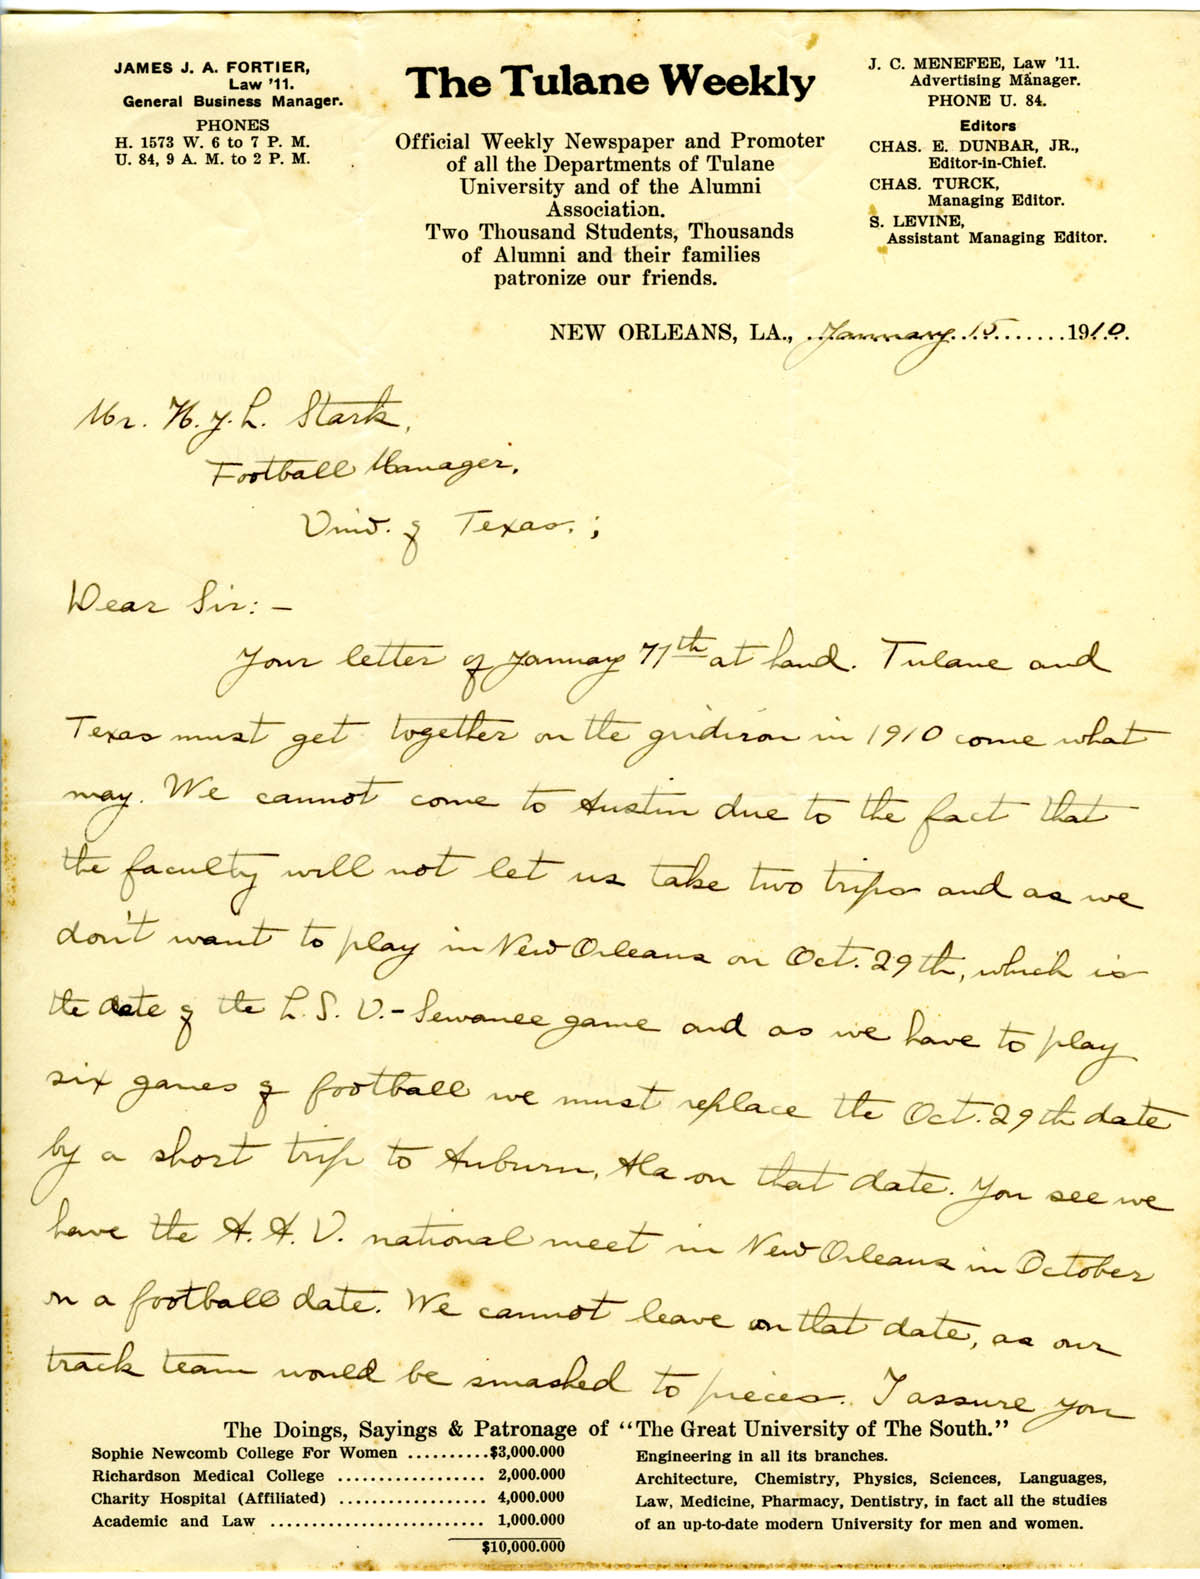 JAMES J. A. FORTIER,
Law '11.
General Business Manager.
PHONES
H. 1573 W. 6 to 7 P. M.
U. 84, 9 A. M. to 2 P. M.
The Tulane Weekly
Official Weekly Newspaper and Promoter
of all the Departments of Tulane
University and of the Alumni
Association.
Two Thousand Students, Thousands
of Alumni and their families
patronize our friends.
J. C. MENEFEE, Law '11.
Advertising Manager.
PHONE U. 84.
Editors
CHAS. E. DUNBAR, JR.,
Editor-in-Chief.
CHAS. TURCK,
Managing Editor.
S. LEVINE,
Assistant Managing Editor.
NEW ORLEANS, LA., January 15 1910.
Mr. H. J. L. Stark,
Football Manager,
Univ. of Texas.;
Dear Sir:-
Your letter of January 11th at hand. Tulane and
Texas must get together on the gridiron in 1910 come what
may. We cannot come to Austin due to the fact that
the faculty will not let us take two trips and as we
don't want to play in New Orleans on Oct. 29th, which is
the date of the L. S. U. - Sewanee game and as we have to play
six games of football we must replace the Oct. 29th date
by a short trip to Auburn, Ala on that date. You see we
have the A. A. U. national meet in New Orleans in October
on a football date. We cannot leave on that date, as our
track team would be smashed to pieces. I assure you
The Doings, Sayings & Patronage of "The Great University of The South."
Sophie Newcomb College For Women ..........$3,000.000
Richardson Medical College .................. 2,000.000
Charity Hospital (Affiliated) .................. 4,000.000
Academic and Law .......................... 1,000.000
$10,000.000
Engineering in all its branches.
Architecture, Chemistry, Physics, Sciences, Languages,
Law, Medicine, Pharmacy, Dentistry, in fact all the studies
of an up-to-date modern University for men and women.